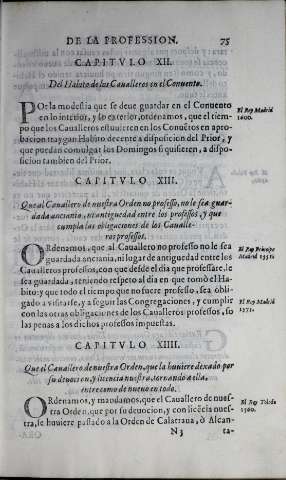 DE LA PROFESSION. 75
CAPITVLO XII.
Del Habito de los Caualleros en el Conuento.
POr la modestia que se deue guardar en el Conuento
en lo interior, y lo exterior, ordenamos, que el tiem-
po que los Caualleros estuuieren en los Conuẽtos en apro-
bacion traygan Habito decente a disposicion del Prior, y
que puedan comulgar los Domingos si quisieren, a dispo-
sicion tambien del Prior.
El Rey Madrid
1600.
CAPITVLO XIII.
Que al Cauallero de nuestra Orden no professo, no le sea guar-
dada anciania, ni antiguedad entre los professos, y que
cumpla las obligaciones de los Caualle-
ros professos.
ORdenamos, que al Cauallero no professo no le sea
guardada anciania, ni lugar de antiguedad entre los
Caualleros professos, con que desde el dia que professare, le
sea guardada, teniendo respeto al dia en que tomò el Ha-
bito: y que todo el tiempo que no fuere professo, sea obli-
gado a visitarse, y a seguir las Congregaciones, y cumplir
con las otras obligaciones de los Caualleros professos, so
las penas a los dichos professos impuestas.
El Rey Principe
Madrid 1551.
El Rey Madrid
1571.
CAPITVLO XIIII.
Que el Cauallero de nuestra Orden, que la huuiere dexado por
su deuocion, y licencia nuestra, tornando a ella,
entre como de nueuo en todo.
ORdenamos, y mandamos, que el Cauallero de nues-
tra Orden, que por su deuocion, y con licẽcia nues-
tra, le huuiere passado a la Orden de Calatraua, ò Alcan-
El Rey Toledo
1560.
N 3 ta-